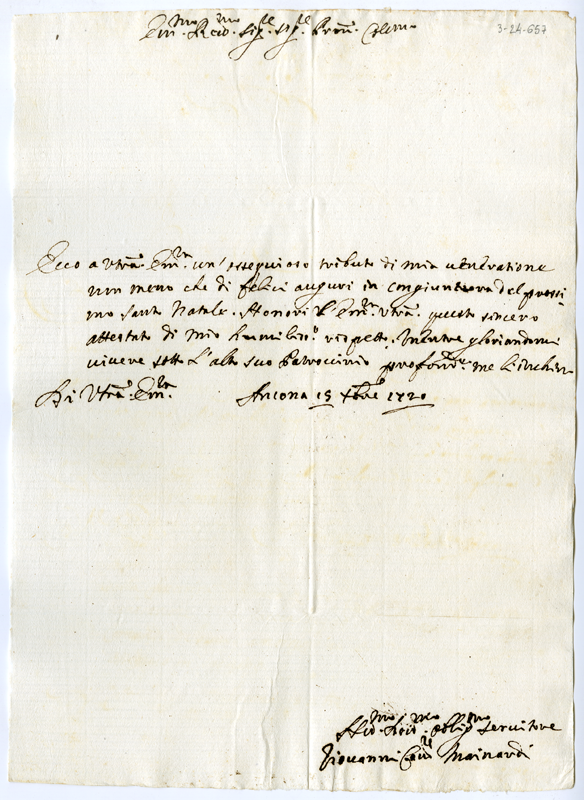 Em.mo Rev.mo Sig.re Sig.re Pron. Colmo
3-24-657
Ecco a Vtra. Em.za un' ossequioso tributo di mia veneratione
non meno che di felici auguri in congiuntura del prossi
mo santo Natale. Honori l'Em.za Vtra. questo sincero
attestato di mio humiliss.o rispetto. Mentre gloriandomi
vivere sotto l'alto suo Patrocinio profond.te me l'inchino
Di Vtra. Em.za Ancona 15 Xbre 1720
Hu.mo Dev.mo Oblig.mo Servitore
Giovanni Mainardi